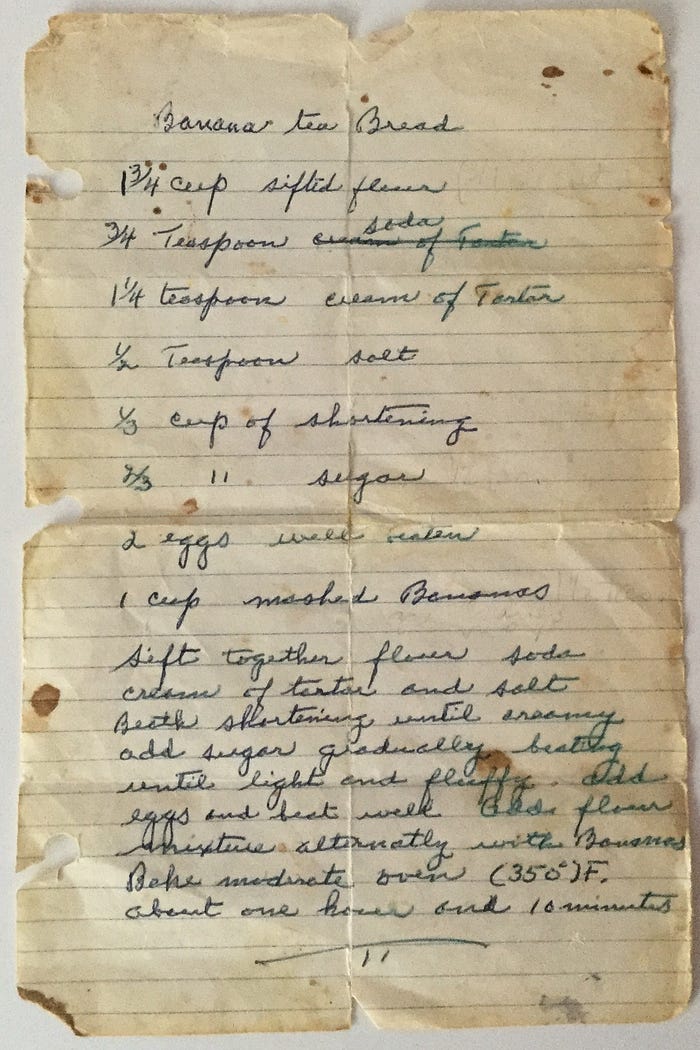 Banana tea Bread
1 3/4 cup sifted flour
soda
3/4 Teaspoon cream of Tartar
1 1/4 teaspoon cream of Tartar
1/2 Teaspoon salt
1/3 cup of shortening
2/3 " sugar
2 eggs well eaten
1 cup mashed Bananas
Sift together flour soda
cream of tartar and salt
Beath shortening until creamy
add sugar gradually beating
until light and fluffy. add
eggs and beat well Add flour
mixture alternatly with Bananas
Bake moderate oven (350°)F.
about one hour and 10 minutes
"